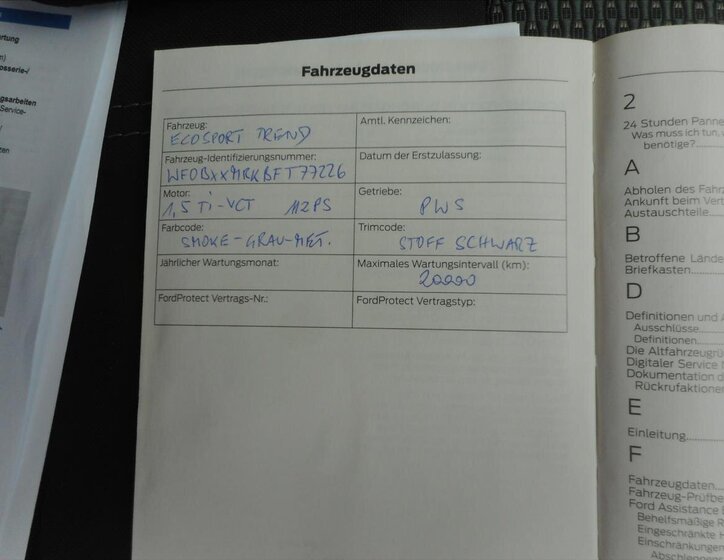 rtung
osserie-/
gsarbeiten
Service-
zen
Fahrzeugdaten
Fahrzeug:
ECOSPORT TREND
Amtl. Kennzeichen:
Fahrzeug-Identifizierungsnummer:
WF0BXXMRKBFT77226
Datum der Erstzulassung:
Motor:
1,5 Ti-VCT 112PS
Getriebe:
PWS
Farbcode:
SMOKE-GRAU-MET.
Trimcode:
STOFF SCHWARZ
Jährlicher Wartungsmonat:
Maximales Wartungsintervall (km):
20000
FordProtect Vertrags-Nr.:
FordProtect Vertragstyp:
2
24 Stunden Panne
Was muss ich tun,
benötige?
A
Abholen des Fahr
Ankunft beim Vert
Austauschteile
B
Betroffene Lände
Briefkasten
D
Definitionen und A
Ausschlüsse
Definitionen
Die Altfahrzeugrü
Digitaler Service
Dokumentation d
Rückrufaktione
E
Einleitung
F
Fahrzeugdaten
Fahrzeug-Prüfbe
Ford Assistance
Behelfsmäßige R
Eingeschränkte
Einschränkungen
Abschleppen